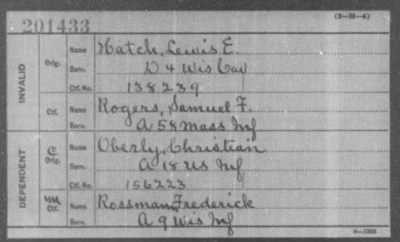 (3—32—A)
201433
INVALID
Orig.
Name Hatch, Lewis E.
Serv. D 4 Wis Cav
Ctf. No. 138239
Ctf.
Name Rogers, Samuel F.
Serv. A 58 Mass Inf
DEPENDENT
C
Orig.
Name Oberly, Christian
Serv. A 18 US Inf
Ctf. No. 156223
Ctf.
Name Rossman, Frederick
Serv. A 9 Wis Inf